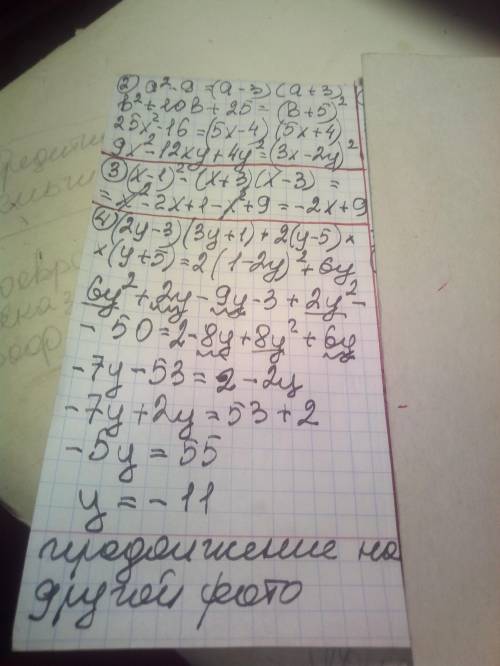 ② a²-9=(a-3)(a+3)
b²+10b+25=(b+5)²
25x²-16=(5x-4)(5x+4)
9x²-12xy+4y²=(3x-2y)²
③ (x-1)²-(x+3)(x-3)=
=x²-2x+1-x²+9=-2x+9
④ (2y-3)(3y+1)+2(y-5)×
×(y+5)=2(1-2y)²+6y
6y²+2y-9y-3+2y²-
-50=2-8y+8y²+6y
-7y-53=2-2y
-7y+2y=53+2
-5y=55
y=-11
продолжение на
другой фото